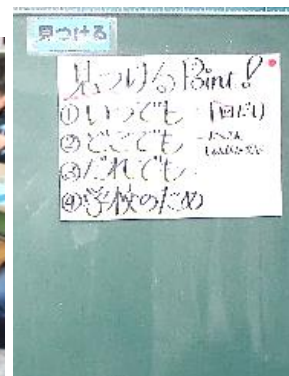 見つける
見つける Point!
①いつでも
②どこでも
③だれでも
④学校のため